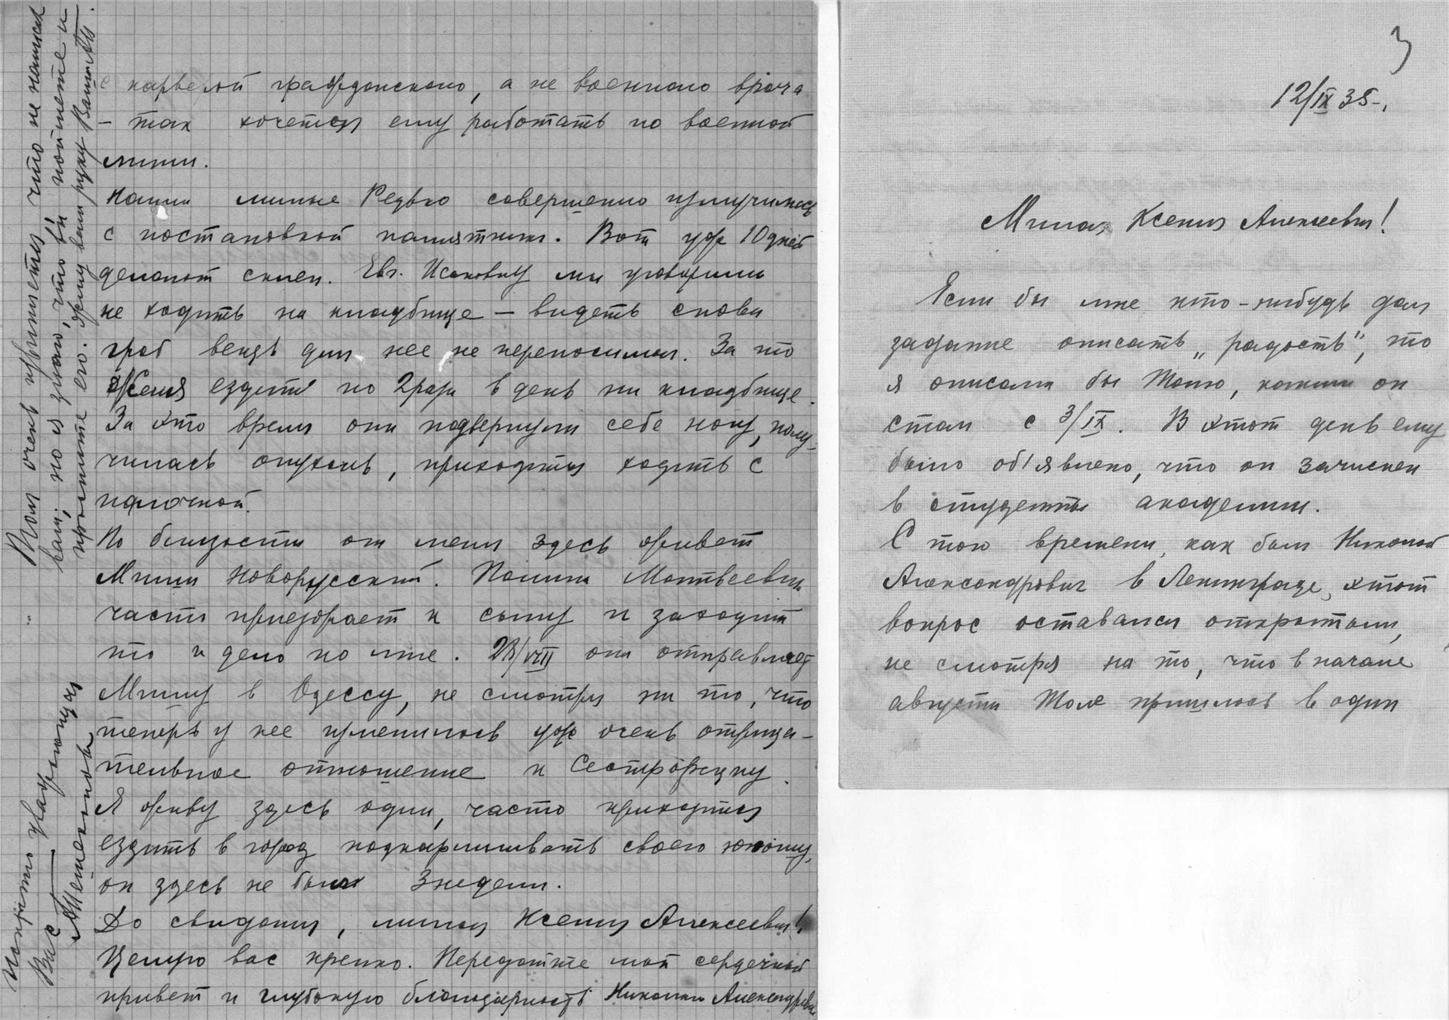 с карьерой гражданского, а не военного врача
– так хочется ему работать по военной
линии.
Наши милые Редько совершенно измучились
с постановкой памятника. Вот уж 10 дней
делают склеп. Евг. Исаковну мы уговорили
не ходить на кладбище – видеть снова
гроб ведь для нее не переносимо. За то
Женя ездит по 2 раза в день на кладбище.
За это время она подвернула себе ногу, полу-
чилась опухоль, приходится ходить с
палочкой.
По близости от меня здесь живет
Миша Новорусский. Полина Матвеевна
часто приезжает к сыну и заходит
то и дело ко мне. 28/VIII он отправляет
Мишу в Одессу, не смотря на то, что
теперь у нее изменилось уж очень отрица-
тельное отношение к Сестрорецку.
Я живу здесь одна, часто приходится
ездить в город подкармливать своего юношу,
он здесь не был 3 недели.
До свиданья, милая Ксения Алексеевна!
Целую вас крепко. Передайте мой сердечный
привет и глубокую благодарность Николаю Александрови
Искренно уважающая
Вас
Толя очень извиняется, что не написал
вам; но я знаю, что вы поймете и
простите его. Жму вашу руку
3
12/IX 35-.
Милая Ксения Алексеевна!
Если бы мне кто-нибудь дал
задание описать „радость", то
я описала бы Толю, каким он
стал с 3/IX. В этот день ему
было об'явлено, что он зачислен
в студенты академии.
С того времени, как был Николай
Александрович в Ленинграде, этот
вопрос оставался открытым,
не смотря на то, что в начале
августа Толе пришлось в один